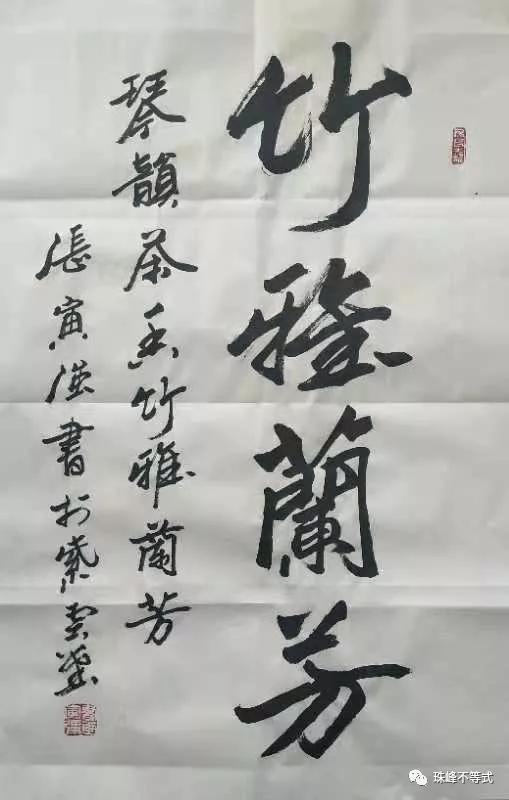 竹雅蘭芳
琴韻茶香竹雅蘭芳
張寅漢書於紫雲堂
珠峰不等式